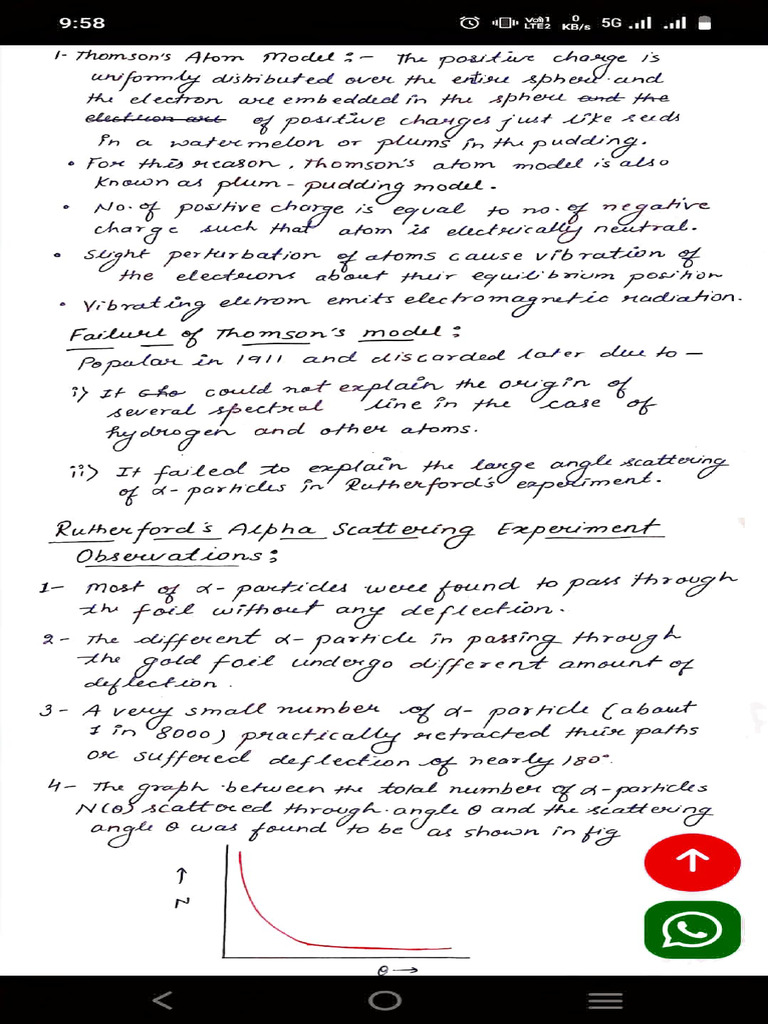 9:58
Vo) 1
LTE2
0
KB/s
5G
1- Thomson's Atom Model :- The positive charge is
uniformly distributed over the entire sphere and
the electron are embedded in the sphere and the
electron are of positive charges just like seeds
in a watermelon or plums in the pudding.
• For this reason, Thomson's atom model is also
known as plum-pudding model.
• No. of positive charge is equal to no. of negative
charge such that atom is electrically neutral.
• Slight perturbation of atoms cause vibration of
the electrons about their equilibrium position
• Vibrating eletrom emits electromagnetic radiation.
Failure of Thomson's model :
Popular in 1911 and discarded later due to —
i) It could not explain the origin of
several spectral line in the case of
hydrogen and other atoms.
ii) It failed to explain the large angle scattering
of α-particles in Rutherford's experiment.
Rutherford's Alpha Scattering Experiment
Observations :
1- Most of α-particles were found to pass through
the foil without any deflection.
2- The different α-particle in passing through
the gold foil undergo different amount of
deflection.
3- A very small number of α- particle (about
1 in 8000) practically retracted their paths
or suffered deflection of nearly 180°.
4- The graph between the total number of α-particles
N(θ) scattered through angle θ and the scattering
angle θ was found to be as shown in fig
↑
N
θ →